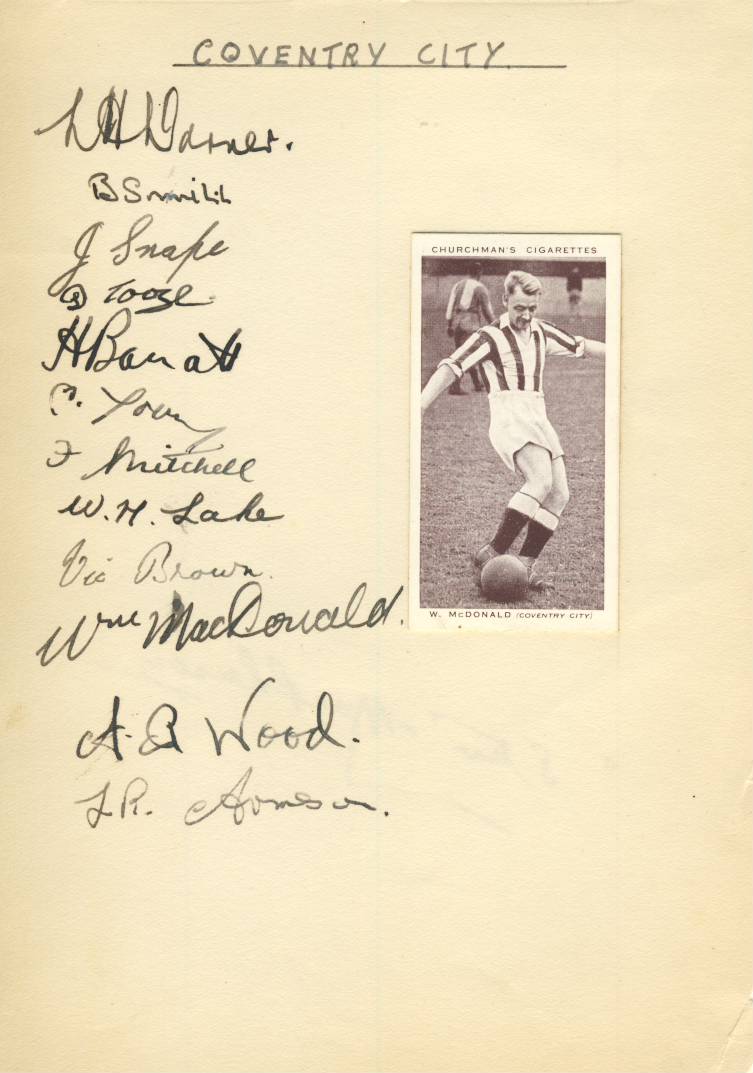 COVENTRY CITY
L H Warner.
B Smith
J Snape
D Tooze
H Barratt
C. Young
F Mitchell
W. H. Lake
Vic Brown.
Wm MacDonald.
A. R Wood.
L R. Armeson.
CHURCHMAN'S CIGARETTES
W. McDONALD (COVENTRY CITY)